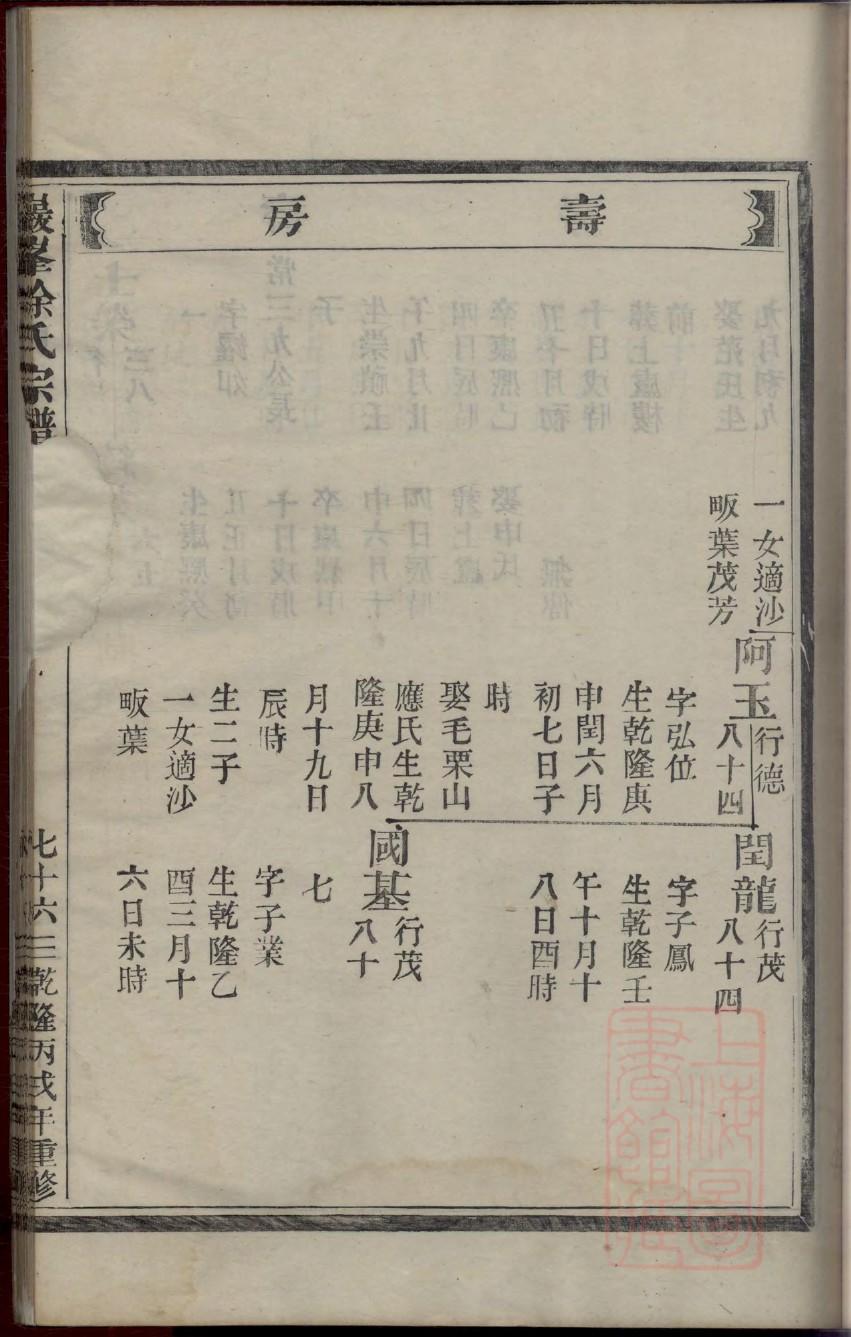 壽房
一女適沙
畈葉茂芳
阿玉行德
八十四
字弘位
生乾隆庚
申閏六月
初七日子
時
娶毛栗山
應氏生乾
隆庚申八
月十九日
辰時
生二子
一女適沙
畈葉
閏龍行茂
八十四
字子鳳
生乾隆壬
午十月十
八日酉時
國基行茂
八十
七
字子業
生乾隆乙
酉三月十
六日未時
巖峯徐氏宗譜
七十六
乾隆丙戌年重修
上海圖書館藏